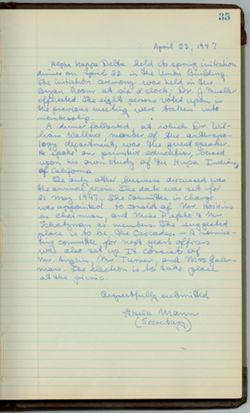 35
April 23, 1947
Alpha Kappa Delta held its spring initiation
dinner on April 22 in the Union Building.
The initiation ceremony was held in the
Bryan Room at six o'clock; Dr. J. Mueller
officiated. The eight persons voted upon in
the previous meeting were taken into
membership.
A dinner followed, at which Dr. Wil-
liam Wallace, master of the anthropo-
logy department, was the guest speaker.
He spoke on primitive education, based
upon his own study of the Hupa Indians
of California.
The only other business discussed was
the annual picnic. The date was set for
21 May 1947. The committee in charge
was appointed to consist of Mr. Hoskins
as chairman, and Miss and Mr.
Schatzman as members. The suggested
place is to be the Cascades. A nomin-
ating committee for next year's officers
was also set up to consist of
Mr. Anglin, Mr. Turner, and Miss
The election is to take place
at the picnic.
Respectfully submitted
Mann
(Secretary)